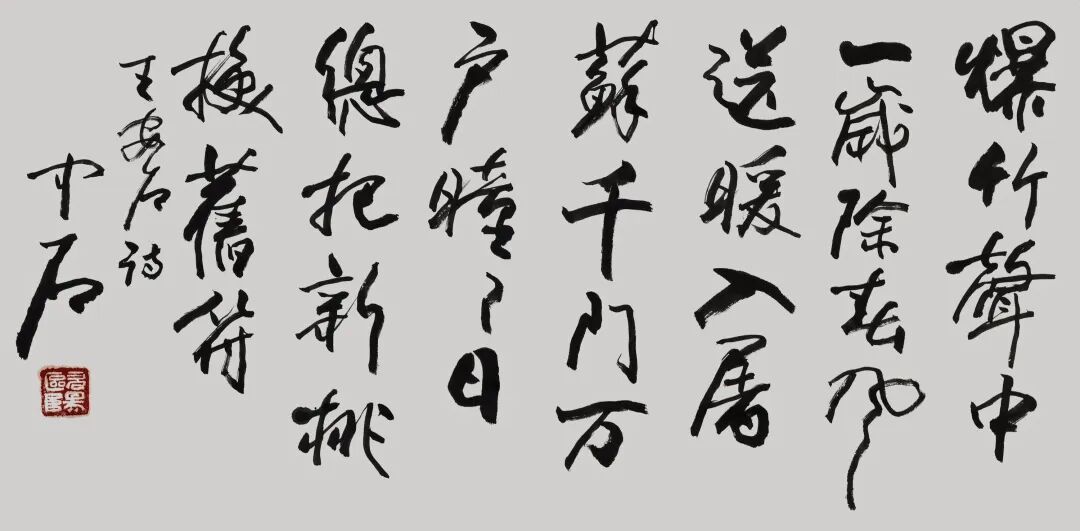 爆竹聲中
一歲除春风
送暖入屠
蘇千门万
户曈々日
總把新桃
換舊符
王安石诗
中石